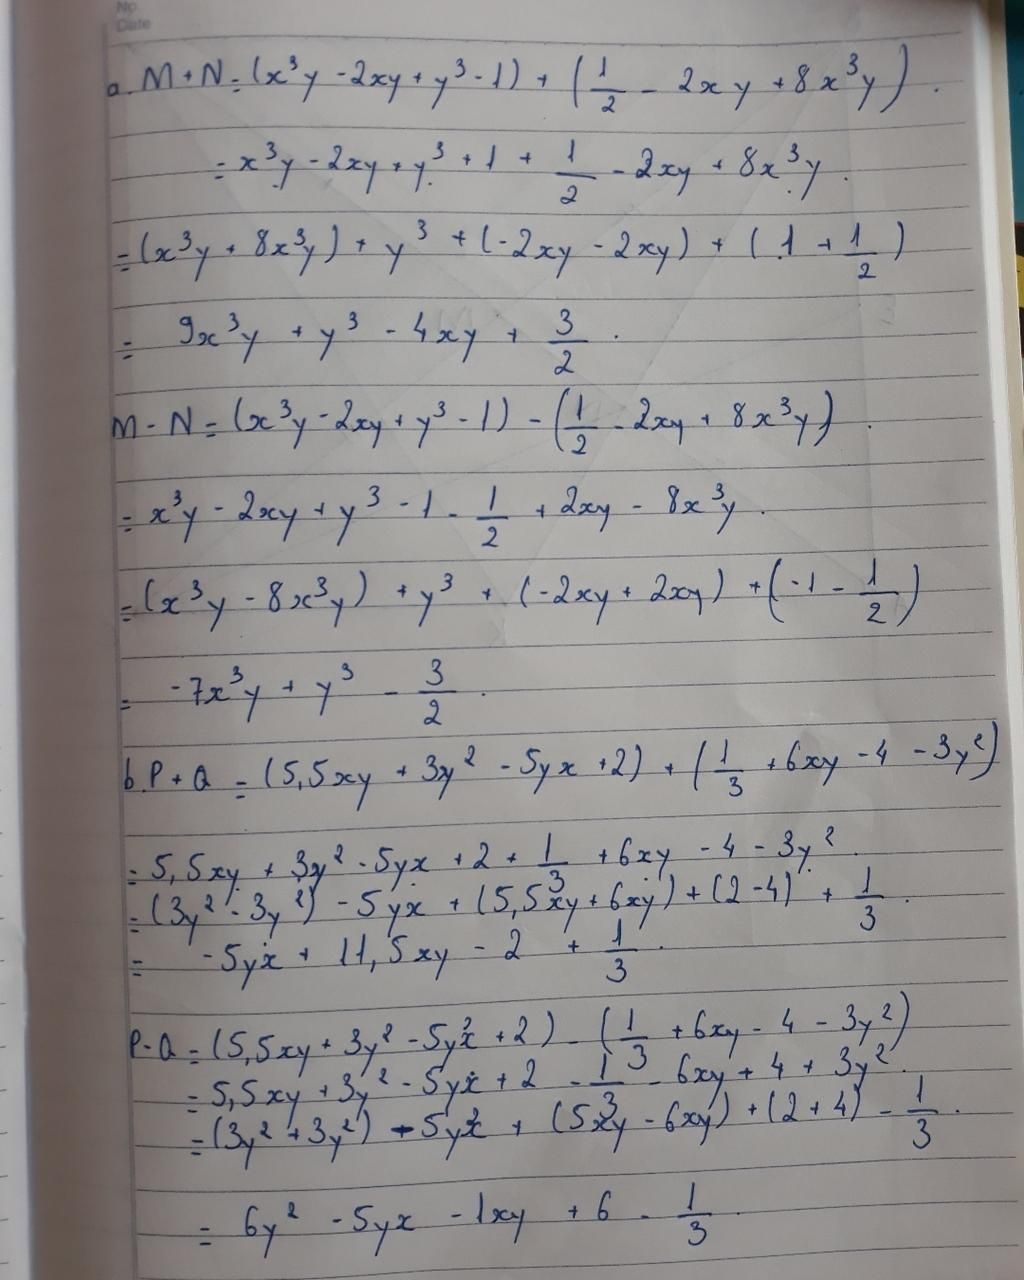 No.
Date
a. M + N = (x³y - 2xy + y³ - 1) + (1/2 - 2xy + 8x³y).
= x³y - 2xy + y³ + 1 + 1/2 - 2xy + 8x³y.
= (x³y + 8x³y) + y³ + (-2xy - 2xy) + (1 + 1/2)
= 9x³y + y³ - 4xy + 3/2.
M - N = (x³y - 2xy + y³ - 1) - (1/2 - 2xy + 8x³y).
= x³y - 2xy + y³ - 1 - 1/2 + 2xy - 8x³y.
= (x³y - 8x³y) + y³ + (-2xy + 2xy) + (-1 - 1/2)
= -7x³y + y³ - 3/2.
b. P + Q = (5,5xy + 3y² - 5yx + 2) + (1/3 + 6xy - 4 - 3y²)
= 5,5xy + 3y² - 5yx + 2 + 1/3 + 6xy - 4 - 3y².
= (3y² - 3y²) - 5yx + (5,5xy + 6xy) + (2 - 4) + 1/3.
= -5yx + 11,5xy - 2 + 1/3.
P - Q = (5,5xy + 3y² - 5yx + 2) - (1/3 + 6xy - 4 - 3y²)
= 5,5xy + 3y² - 5yx + 2 - 1/3 - 6xy + 4 + 3y².
= (3y² + 3y²) - 5yx + (5xy - 6xy) + (2 + 4) - 1/3.
= 6y² - 5yx - 1xy + 6 - 1/3.